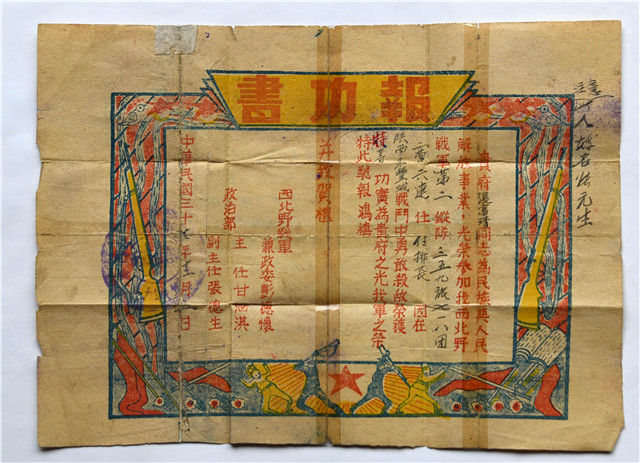 報功書
貴府張富清同志為民族與人民
解放事業，光榮參加我西北野
戰軍第二縱隊三五九旅七一八團
二營六連 任 付排長 因在
陝西永豐城戰鬥中勇敢殺敵榮獲
特等功，實為貴府之光我軍之榮
特此馳報鴻禧
并致賀禮
西北野戰軍
兼政委彭德懷
政治部
主任甘泗淇
副主任張德生
中華民國三十七年十二月 日